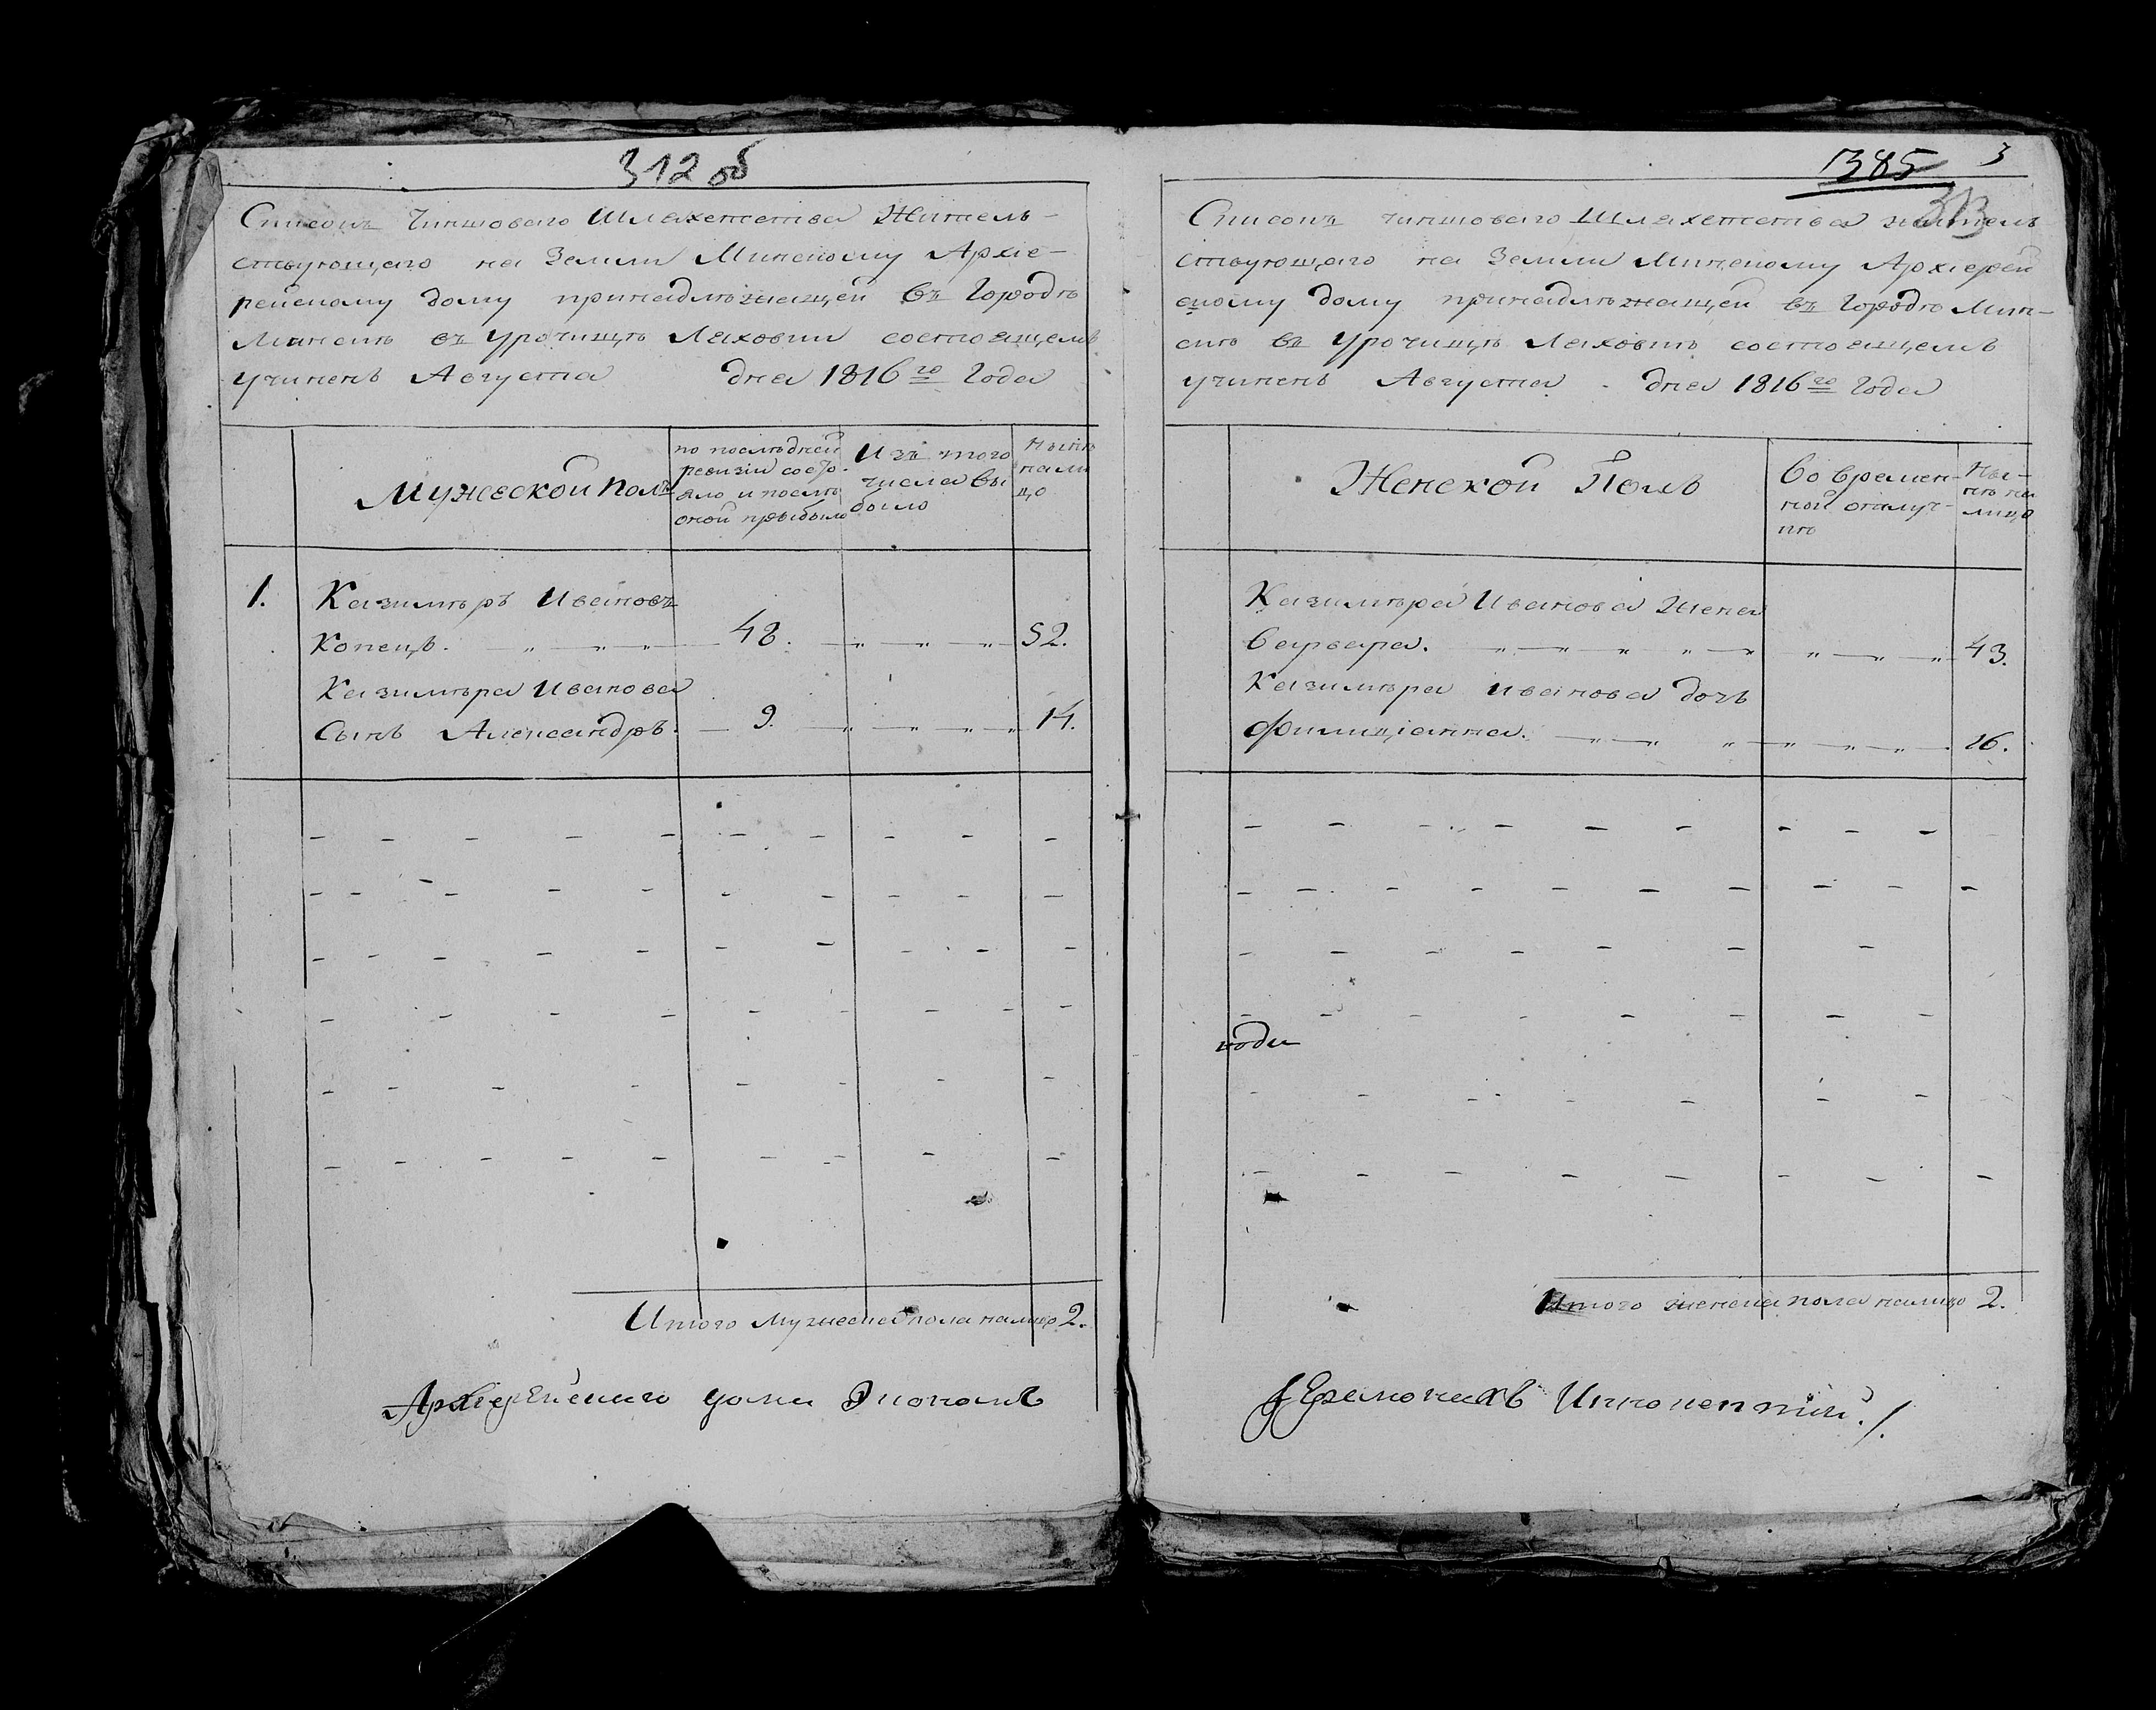 312 об
Списокъ Чиншоваго Шляхетства Житель-
ствующаго на Земли Минскому Архіе-
рейскому дому принадлѣжащей въ Городѣ
Минскѣ въ Урочищѣ Ляховки состоящемъ
учиненъ Августа дня 1816го Года
Мужеской полъ
по послѣдней
ревизіи состо-
яло и послѣ
оной прибыло
Изъ того
числа вы
было
Нынѣ
нали
цо
1. Казимѣръ Ивановъ
Копецъ. 48. 52.
Казимѣра Иванова
Сынъ Александръ. 9. 14.
Итого мужеска пола налицо 2.
Архіерейскаго дома Экономъ
1385 3
313
Списокъ чиншоваго Шляхетства житель
ствующаго на Земли Минскому Архіерей
скому дому принадлѣжащей въ Городѣ Мин-
скѣ въ Урочищѣ Ляховкѣ состоящемъ
учиненъ Августа дня 1816го Года
Женской Полъ
Во времен-
ной отлуч-
кѣ
Ны-
нѣ на
лицо
Казимѣра Иванова Жена
Варвара. 43.
Казимѣра Иванова дочь
Филиціанна. 16.
Итого женска пола налицо 2.
Іеромонахъ Иннокентій.